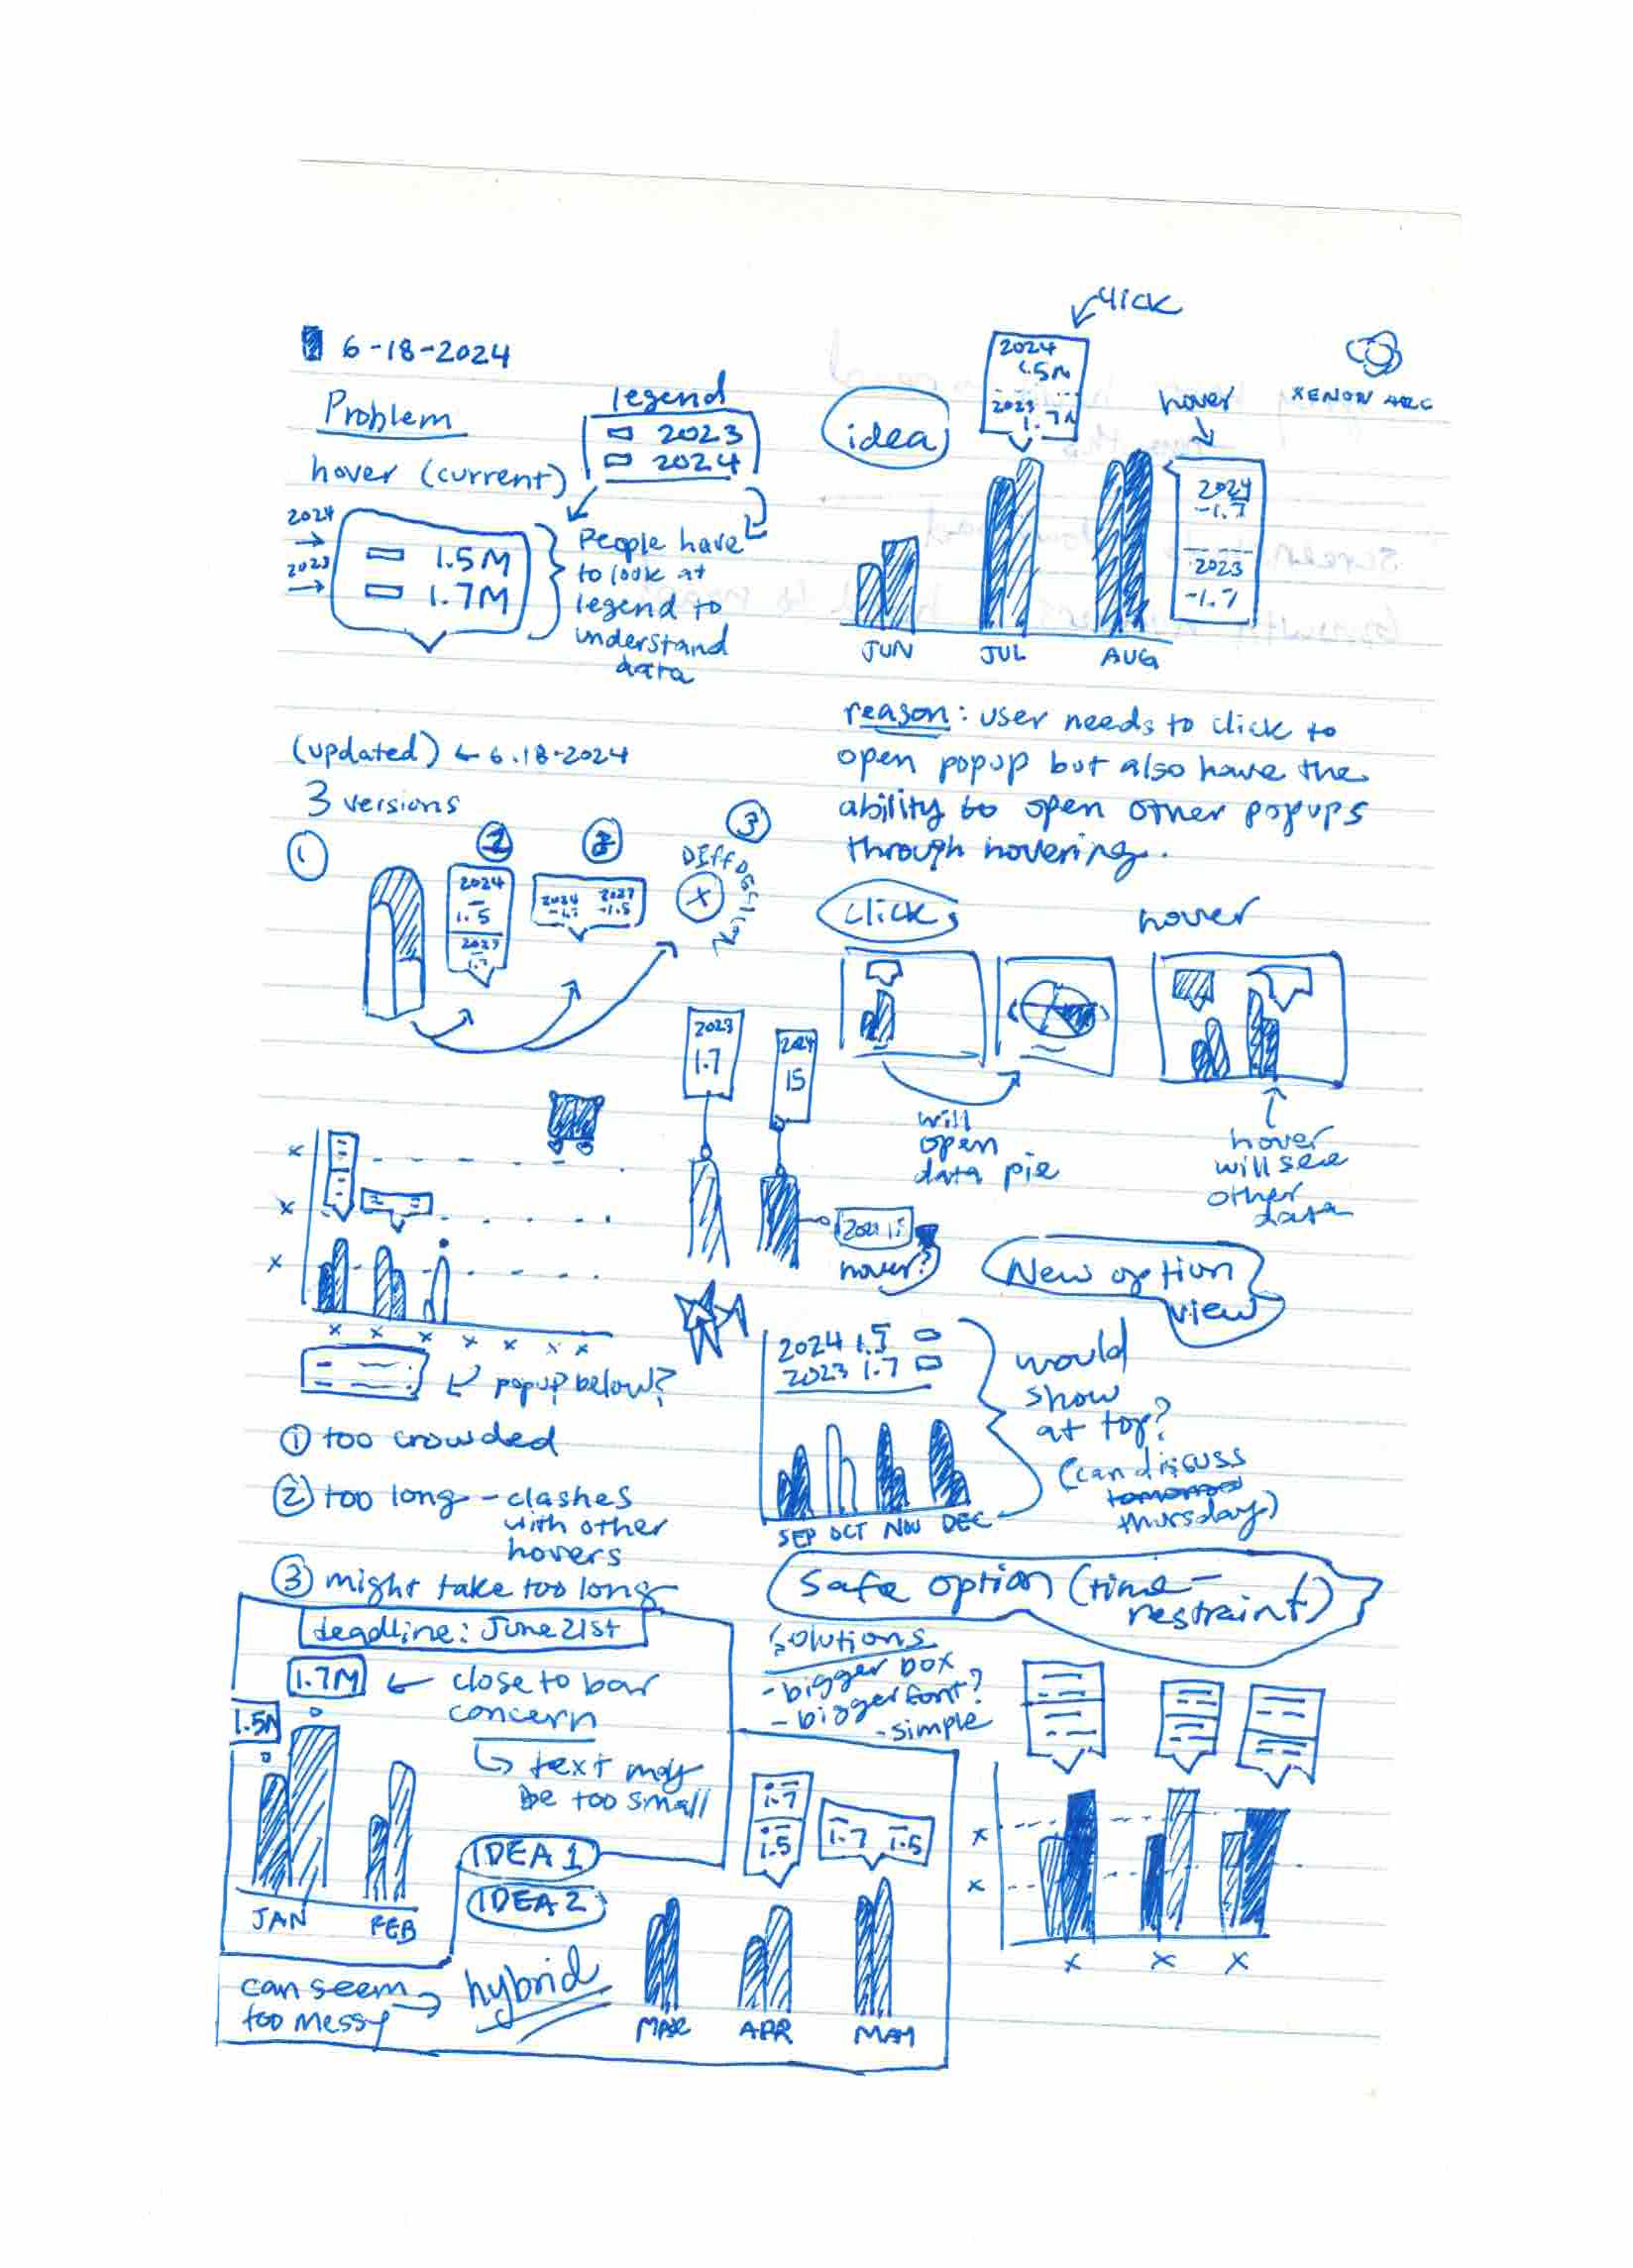 6-18-2024
Problem
legend
2023
2024
hover (current)
2024
2023
1.5M
1.7M
People have
to look at
legend to
understand
data
click
2024
1.5M
2023
1.7M
idea
hover
XENON ARC
2024
-1.7
2023
-1.7
JUN JUL AUG
reason: user needs to click to
open popup but also have the
ability to open other popups
through hovering.
(updated) ← 6.18-2024
3 versions
1
2
3
2024
1.5
2023
1.7
2024 2023
-1.7 -1.5
DIFF DESIGN
X
click
hover
will
open
data pie
hover
will see
other
data
2023
1.7
2024
15
hover?
x
x
x
x x x x x x x
popup below?
① too crowded
② too long - clashes
with other
hovers
③ might take too long
New option
view
2024 1.5
2023 1.7
would
show
at top?
(can discuss
tomorrow
thursday)
SEP OCT NOV DEC
safe option (time-
restraint)
deadline: June 21st
1.7M ← close to bar
concern
1.5M
text may
be too small
JAN FEB
IDEA 1
IDEA 2
can seem
too messy → hybrid
1.7
1.5
1.7 1.5
MAR APR MAY
Solutions
- bigger box
- bigger font?
- simple
x
x
x x x